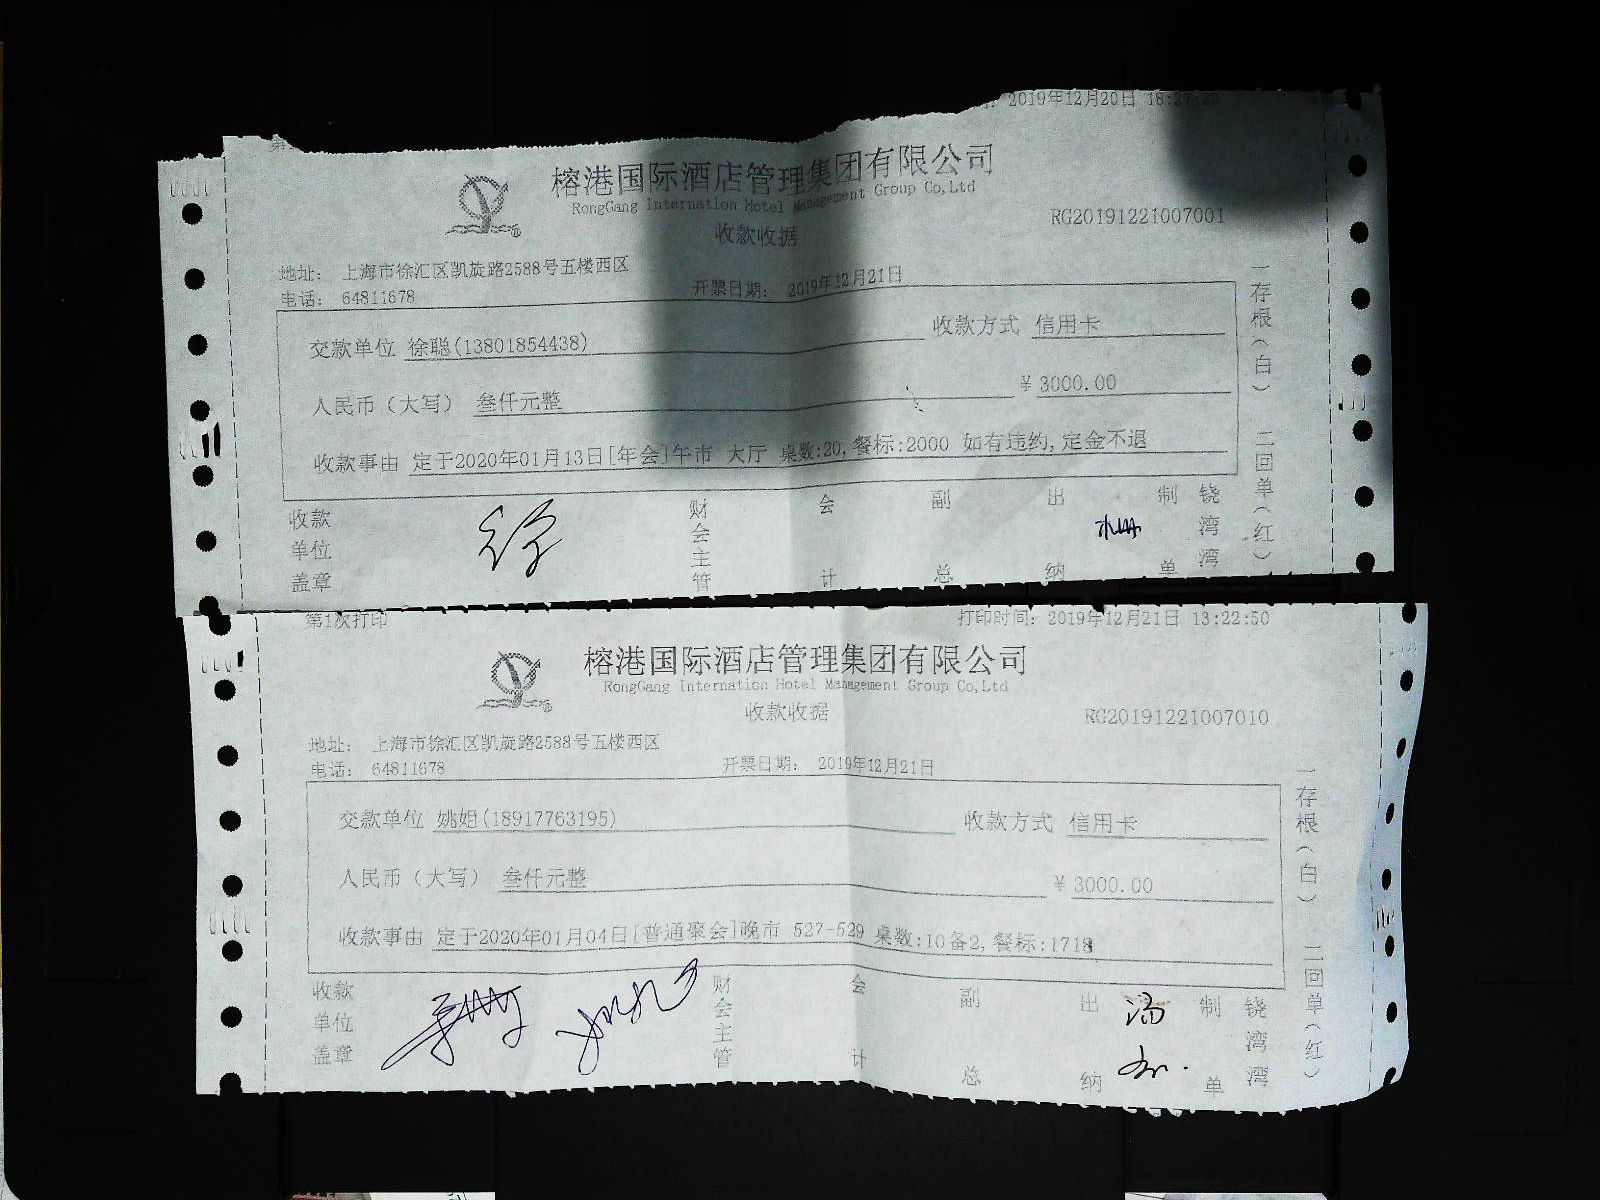 2019年12月20日 18:27:22
榕港国际酒店管理集团有限公司
RongGang Internation Hotel Management Group Co,Ltd
收款收据
RG20191221007001
地址： 上海市徐汇区凯旋路2588号五楼西区
电话： 64811678
开票日期： 2019年12月21日
交款单位 徐聪(13801854438)
收款方式 信用卡
人民币（大写） 叁仟元整
¥ 3000.00
收款事由 定于2020年01月13日[年会]午市 大厅 桌数:20,餐标:2000 如有违约,定金不退
收款单位盖章
财会主管
会计
副总
出纳
制单
饶湾湾
一存根(白)
二回单(红)
第1次打印
打印时间：2019年12月21日 13:22:50
榕港国际酒店管理集团有限公司
RongGang Internation Hotel Management Group Co,Ltd
收款收据
RG20191221007010
地址： 上海市徐汇区凯旋路2588号五楼西区
电话： 64811678
开票日期： 2019年12月21日
交款单位 姚姐(18917763195)
收款方式 信用卡
人民币（大写） 叁仟元整
¥ 3000.00
收款事由 定于2020年01月04日[普通聚会]晚市 527-529 桌数:10备2,餐标:1718
收款单位盖章
财会主管
会计
副总
出纳
制单
饶湾湾
一存根(白)
二回单(红)